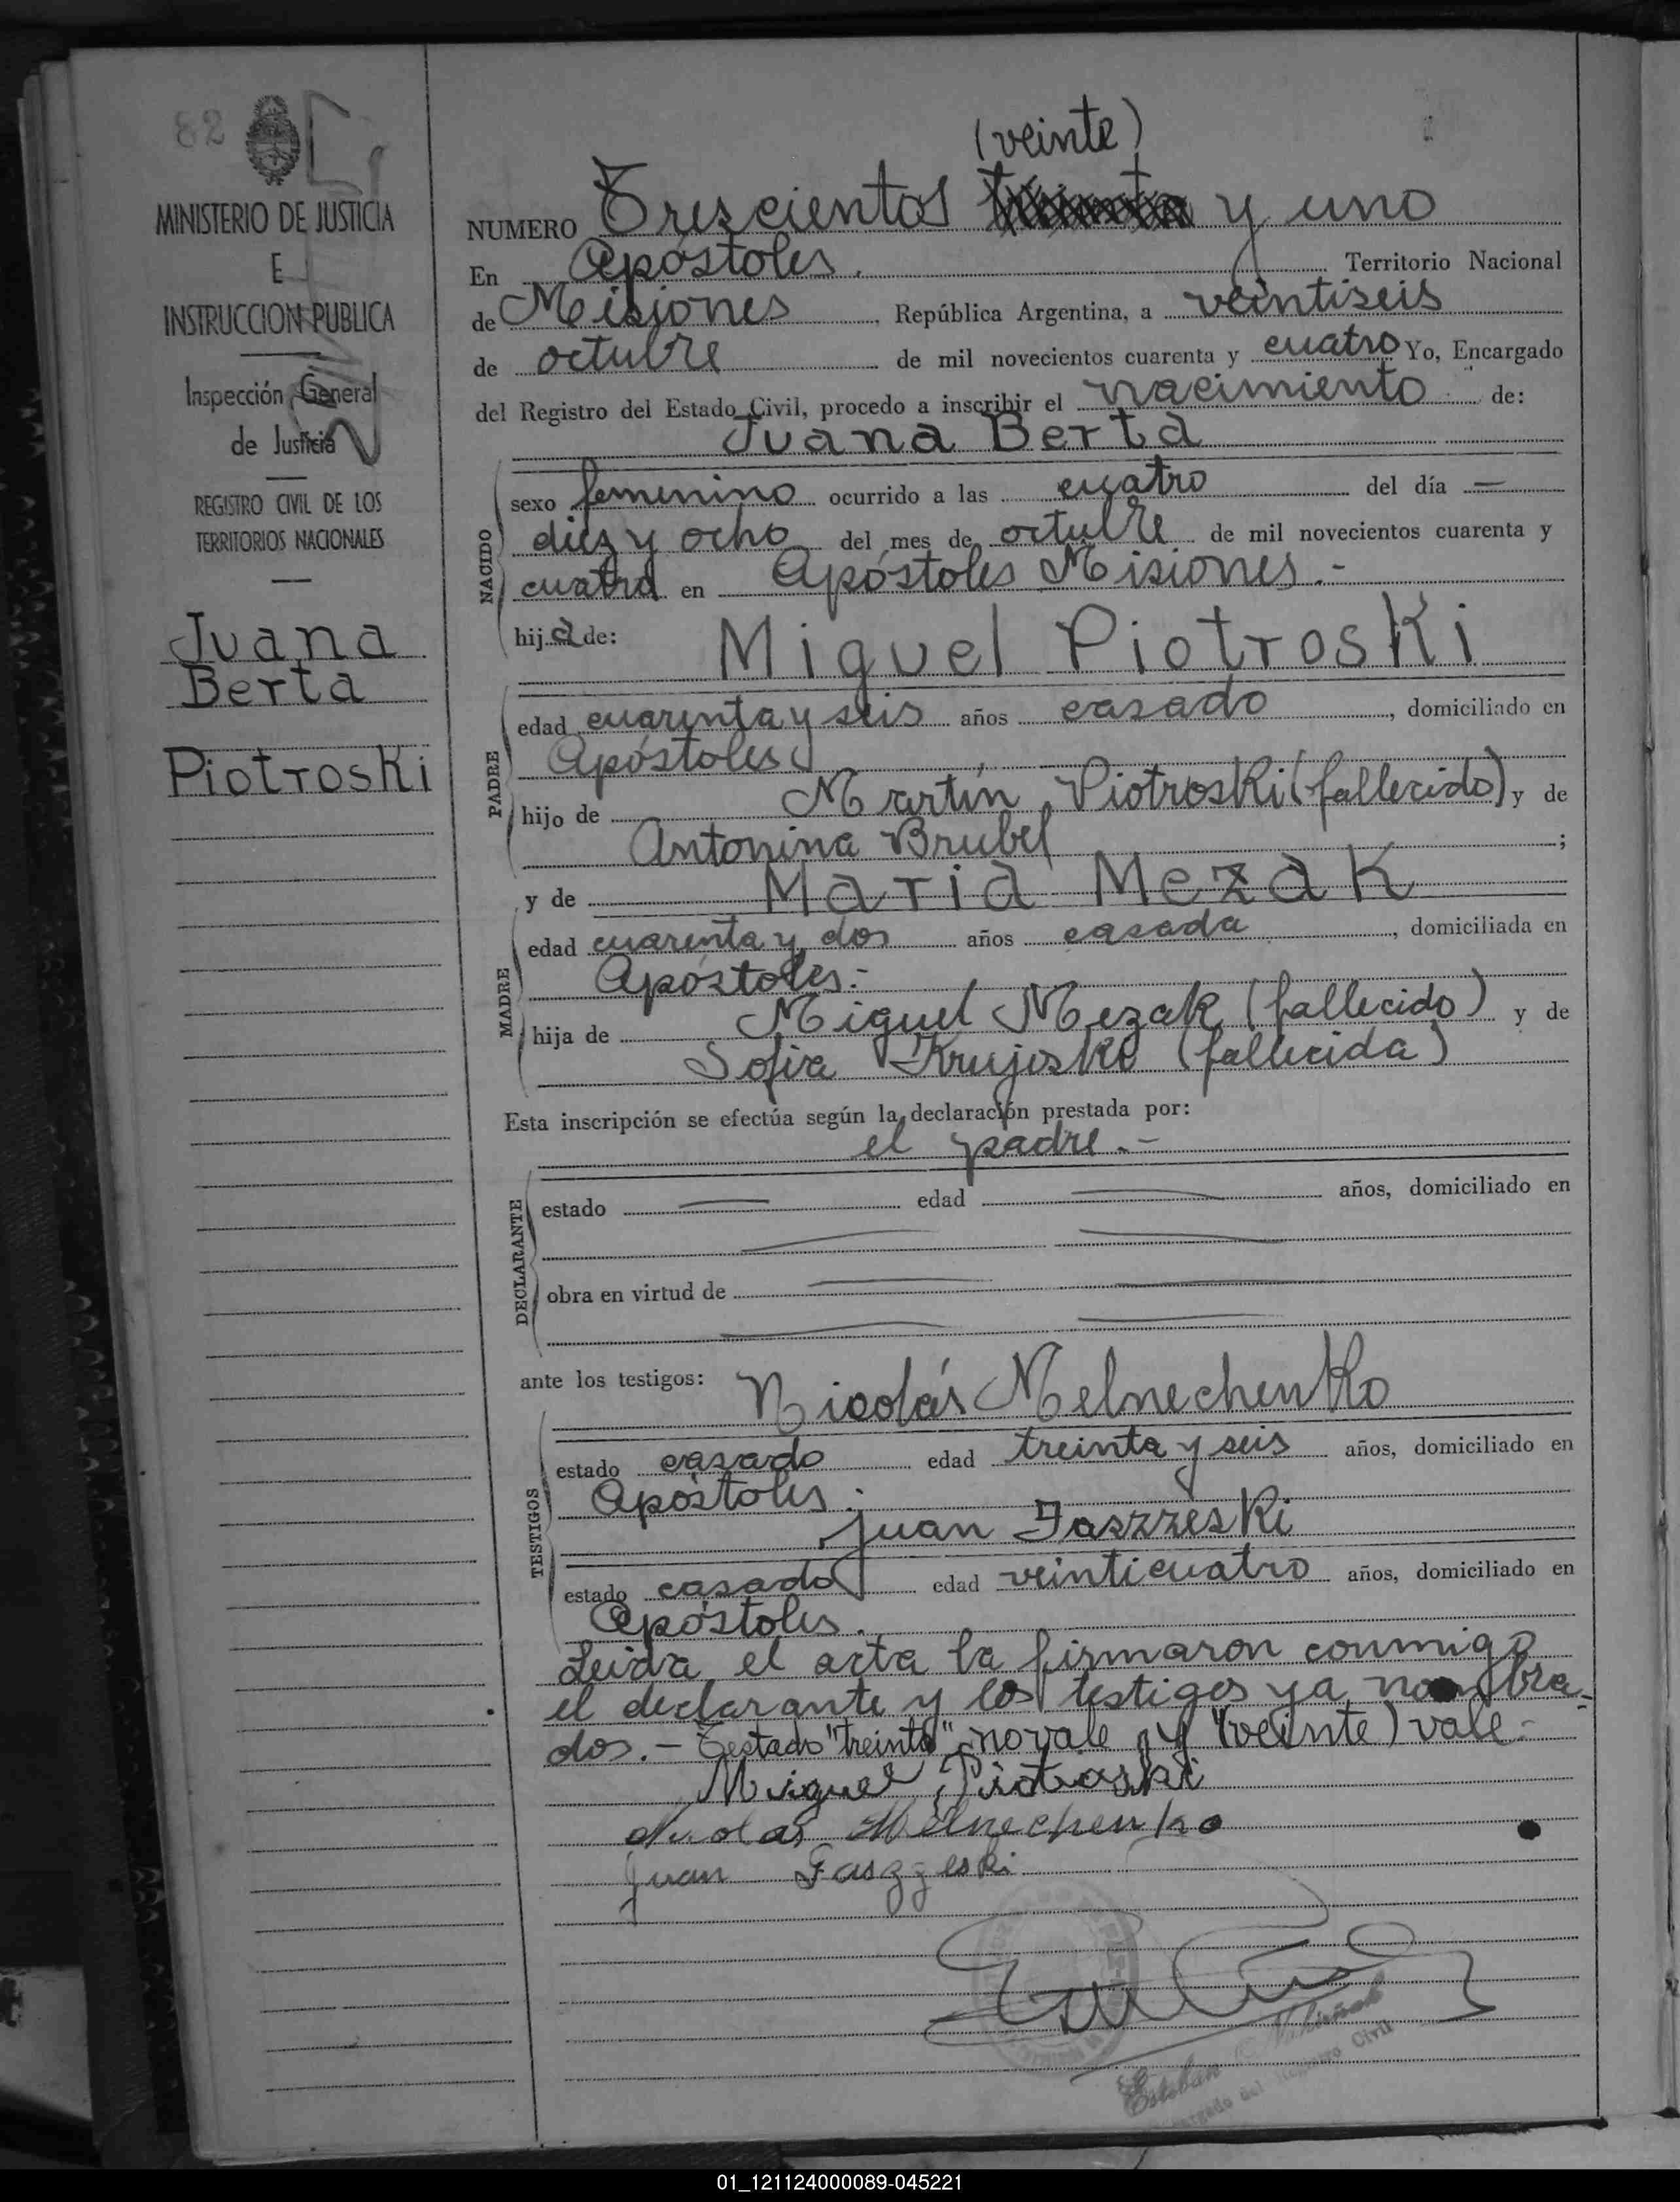 82
MINISTERIO DE JUSTICIA
E
INSTRUCCION PUBLICA
Inspección General
de Justicia
REGISTRO CIVIL DE LOS
TERRITORIOS NACIONALES
Juana
Berta
Piotroski
(veinte)
NUMERO Trescientos treinta y uno
En Apóstoles. Territorio Nacional
de Misiones, República Argentina, a veintiseis
de octubre de mil novecientos cuarenta y cuatro Yo, Encargado
del Registro del Estado Civil, procedo a inscribir el nacimiento de:
Juana Berta
NACIDO
sexo femenino ocurrido a las cuatro del día —
diez y ocho del mes de octubre de mil novecientos cuarenta y
cuatro en Apóstoles Misiones.-
hija de:
Miguel Piotroski
PADRE
edad cuarenta y seis años casado, domiciliado en
Apóstoles
hijo de Martín Piotroski (fallecido) y de
Antonina Brubel;
y de Maria Mezak
MADRE
edad cuarenta y dos años casada, domiciliada en
Apóstoles.-
hija de Miguel Mezak (fallecido) y de
Sofia (fallecida)
Esta inscripción se efectúa según la declaración prestada por:
el padre.-
DECLARANTE
estado — edad — años, domiciliado en
obra en virtud de —
ante los testigos: Nicolás Melnechenko
TESTIGOS
estado casado edad treinta y seis años, domiciliado en
Apóstoles.
Juan Faszzeski
estado casado edad veinticuatro años, domiciliado en
Apóstoles.
Leida el acta la firmaron conmigo
el declarante y los testigos ya nombra-
dos.- Testado "treinta" no vale y (veinte) vale.-
Miguel Piotroski
Nicolas Melnechenko
Juan Faszzeski
Esteban
Encargado del Registro Civil
01_121124000089-045221